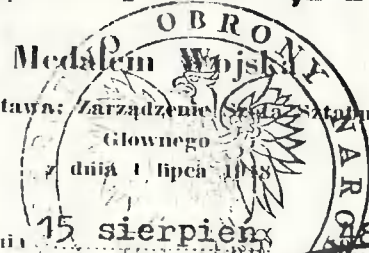 OBRONY NAROD
Medalem Wojska
tawa: Zarządzenie Szefa Sztabu
Głownego
z dnia 1 lipca 1948
15 sierpień 48